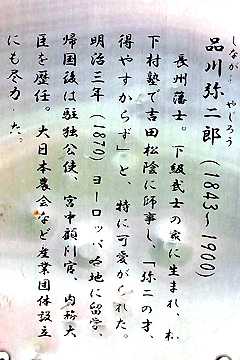 しながわ やじろう
品川弥二郎(1843~1900)
長州藩士。下級武士の家に生まれ、松
下村塾で吉田松陰に師事し、「弥二の才、
得やすからず」と、特に可愛がられた。
明治三年(1870)ヨーロッパ各地に留学、
帰国後は駐独公使、宮中顧問官、内務大
臣を歴任。大日本農会など産業団体設立
にも尽力した。